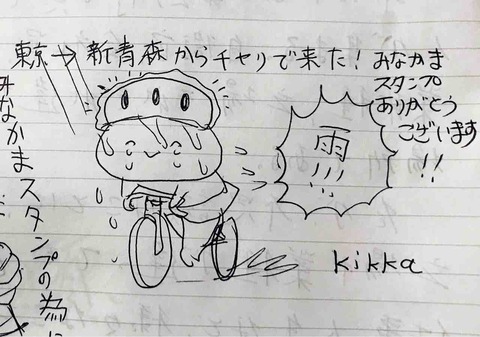 東京→新青森からチャリで来た!
みなかま
スタンプ
ありがとう
ございます
!!
雨
!!!
kikka
みなかまスタンプの為に